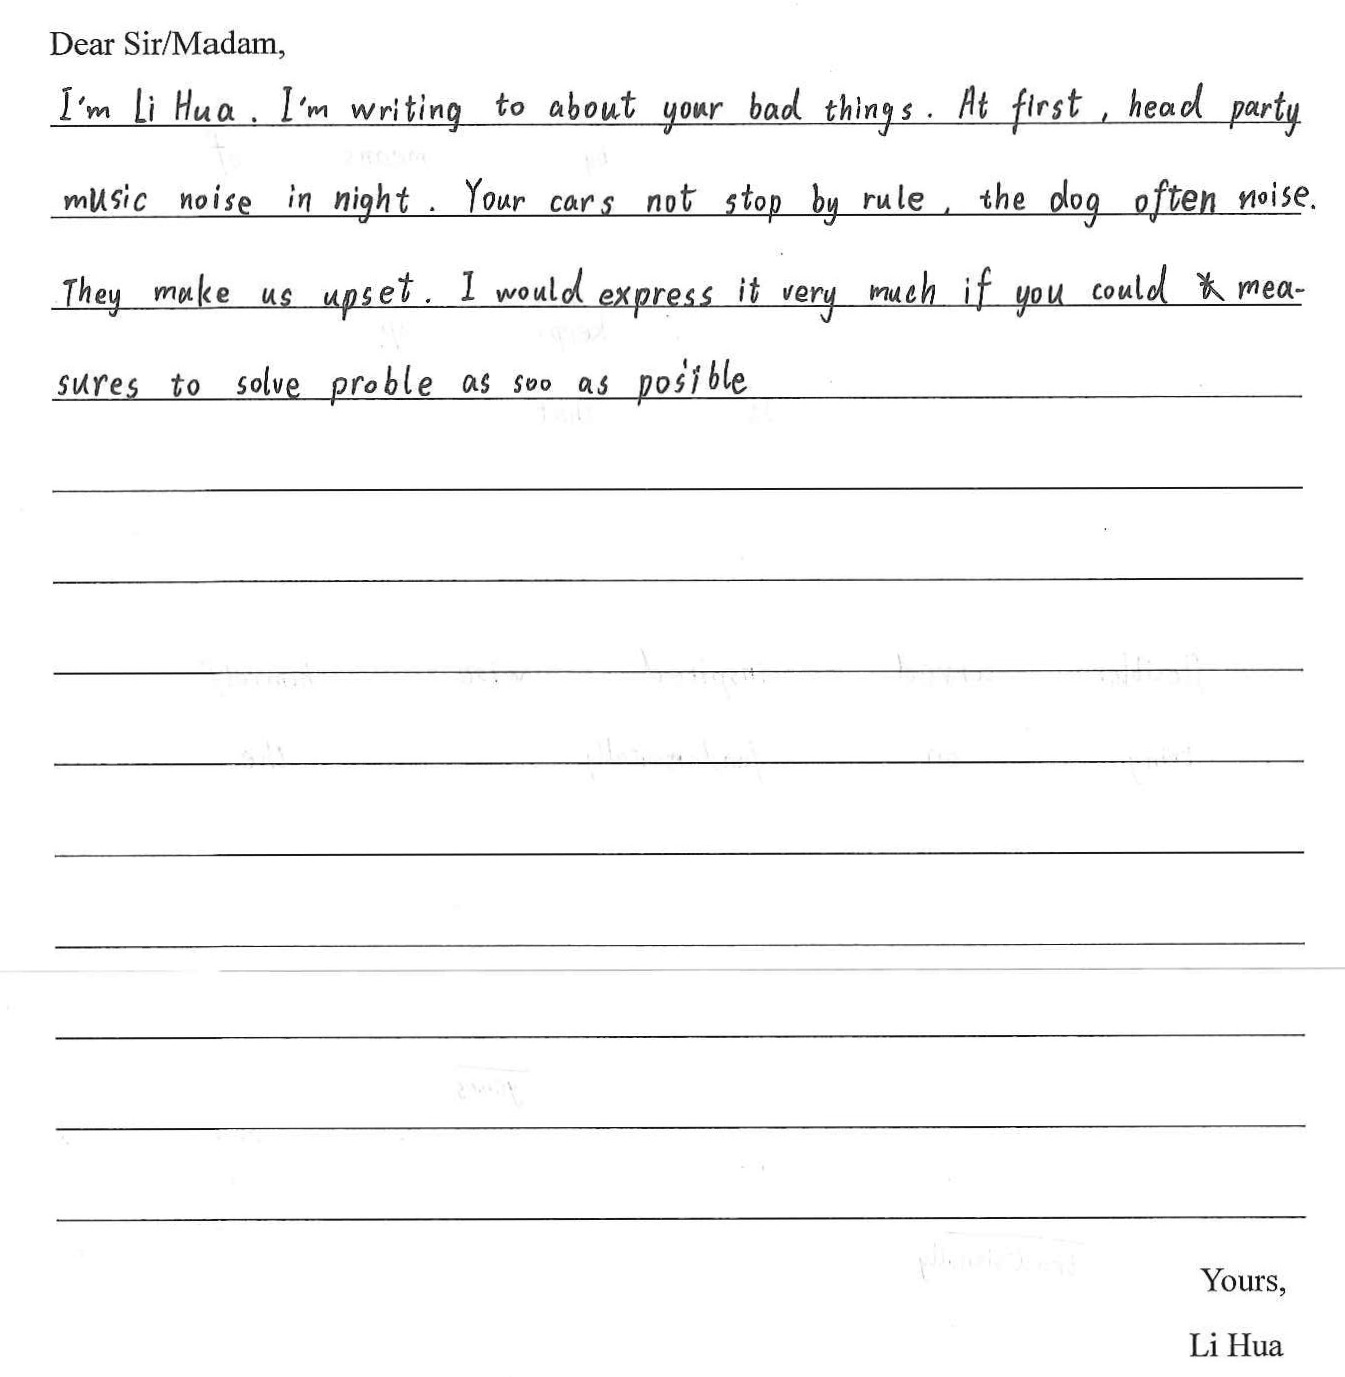 Dear Sir/Madam,
I'm Li Hua. I'm writing to about your bad things. At first, head party
music noise in night. Your cars not stop by rule, the dog often noise.
They make us upset. I would express it very much if you could mea-
sures to solve proble as soo as posible
Yours,
Li Hua